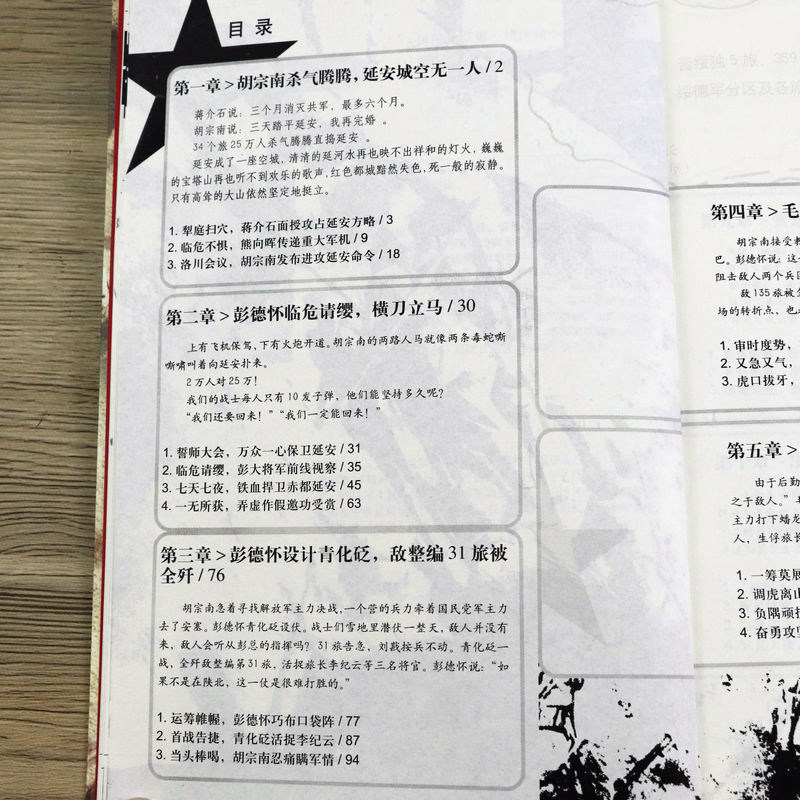 目录
第一章 > 胡宗南杀气腾腾，延安城空无一人 / 2
蒋介石说：三个月消灭共军，最多六个月。
胡宗南说：三天踏平延安，我再完婚 。
34个旅25万人杀气腾腾直捣延安 。
延安成了一座空城，清清的延河水再也映不出祥和的灯火，巍巍
的宝塔山再也听不到欢乐的歌声，红色都城黯然失色，死一般的寂静。
只有高耸的大山依然坚定地挺立。
1. 犁庭扫穴，蒋介石面授攻占延安方略 / 3
2. 临危不惧，熊向晖传递重大军机 / 9
3. 洛川会议，胡宗南发布进攻延安命令 / 18
第二章 > 彭德怀临危请缨，横刀立马 / 30
上有飞机保驾，下有火炮开道。胡宗南的两路人马就像两条毒蛇嘶
嘶啸叫着向延安扑来。
2万人对25万！
我们的战士每人只有10发子弹，他们能坚持多久呢？
“我们还要回来！”“我们一定能回来！”
1. 誓师大会，万众一心保卫延安 / 31
2. 临危请缨，彭大将军前线视察 / 35
3. 七天七夜，铁血捍卫赤都延安 / 45
4. 一无所获，弄虚作假邀功受赏 / 63
第三章 > 彭德怀设计青化砭，敌整编31旅被
全歼 / 76
胡宗南急着寻找解放军主力决战，一个营的兵力牵着国民党军主力
去了安塞。彭德怀青化砭设伏。战士们雪地里潜伏一整天，敌人并没有
来，敌人会听从彭总的指挥吗？31旅告急，刘戡按兵不动。青化砭一
战，全歼敌整编第31旅，活捉旅长李纪云等三名将官。彭德怀说：“如
果不是在陕北，这一仗是很难打胜的。”
1. 运筹帷幄，彭德怀巧布口袋阵 / 77
2. 首战告捷，青化砭活捉李纪云 / 87
3. 当头棒喝，胡宗南忍痛瞒军情 / 94
晋绥独5旅、359
绥德军分区及各旅
第四章 > 毛
胡宗南接受
巴。彭德怀说：这
阻击敌人两个兵团
敌135旅被
场的转折点，也
1. 审时度势，
2. 又急又气，
3. 虎口拔牙，
第五章 >
由于后勤
之于敌人。”
主力打下蟠龙
人，生俘旅长
1. 一筹莫展
2. 调虎离山
3. 负隅顽抗
4. 奋勇攻坚